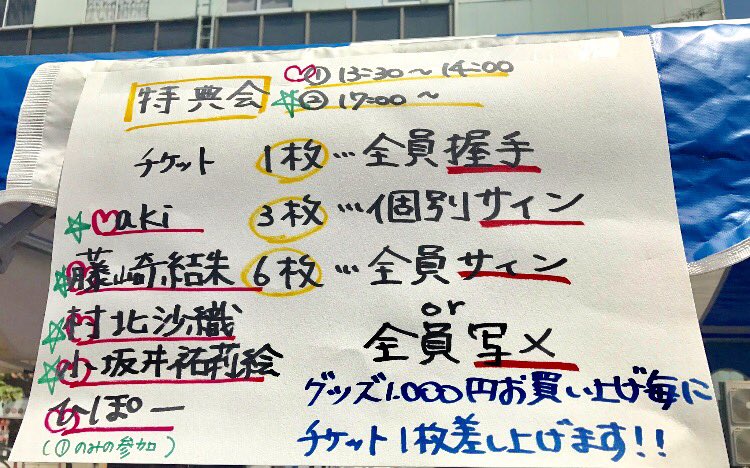 特典会 ♡① 13:30～14:00
☆② 17:00～
チケット 1枚…全員握手
☆♡aki 3枚…個別サイン
☆♡藤崎結朱 6枚…全員サイン
or
☆♡村北沙織 全員写メ
☆♡小坂井祐莉絵
♡ひぽー
(①のみの参加)
グッズ1.000円お買い上げ毎に
チケット1枚差し上げます!!